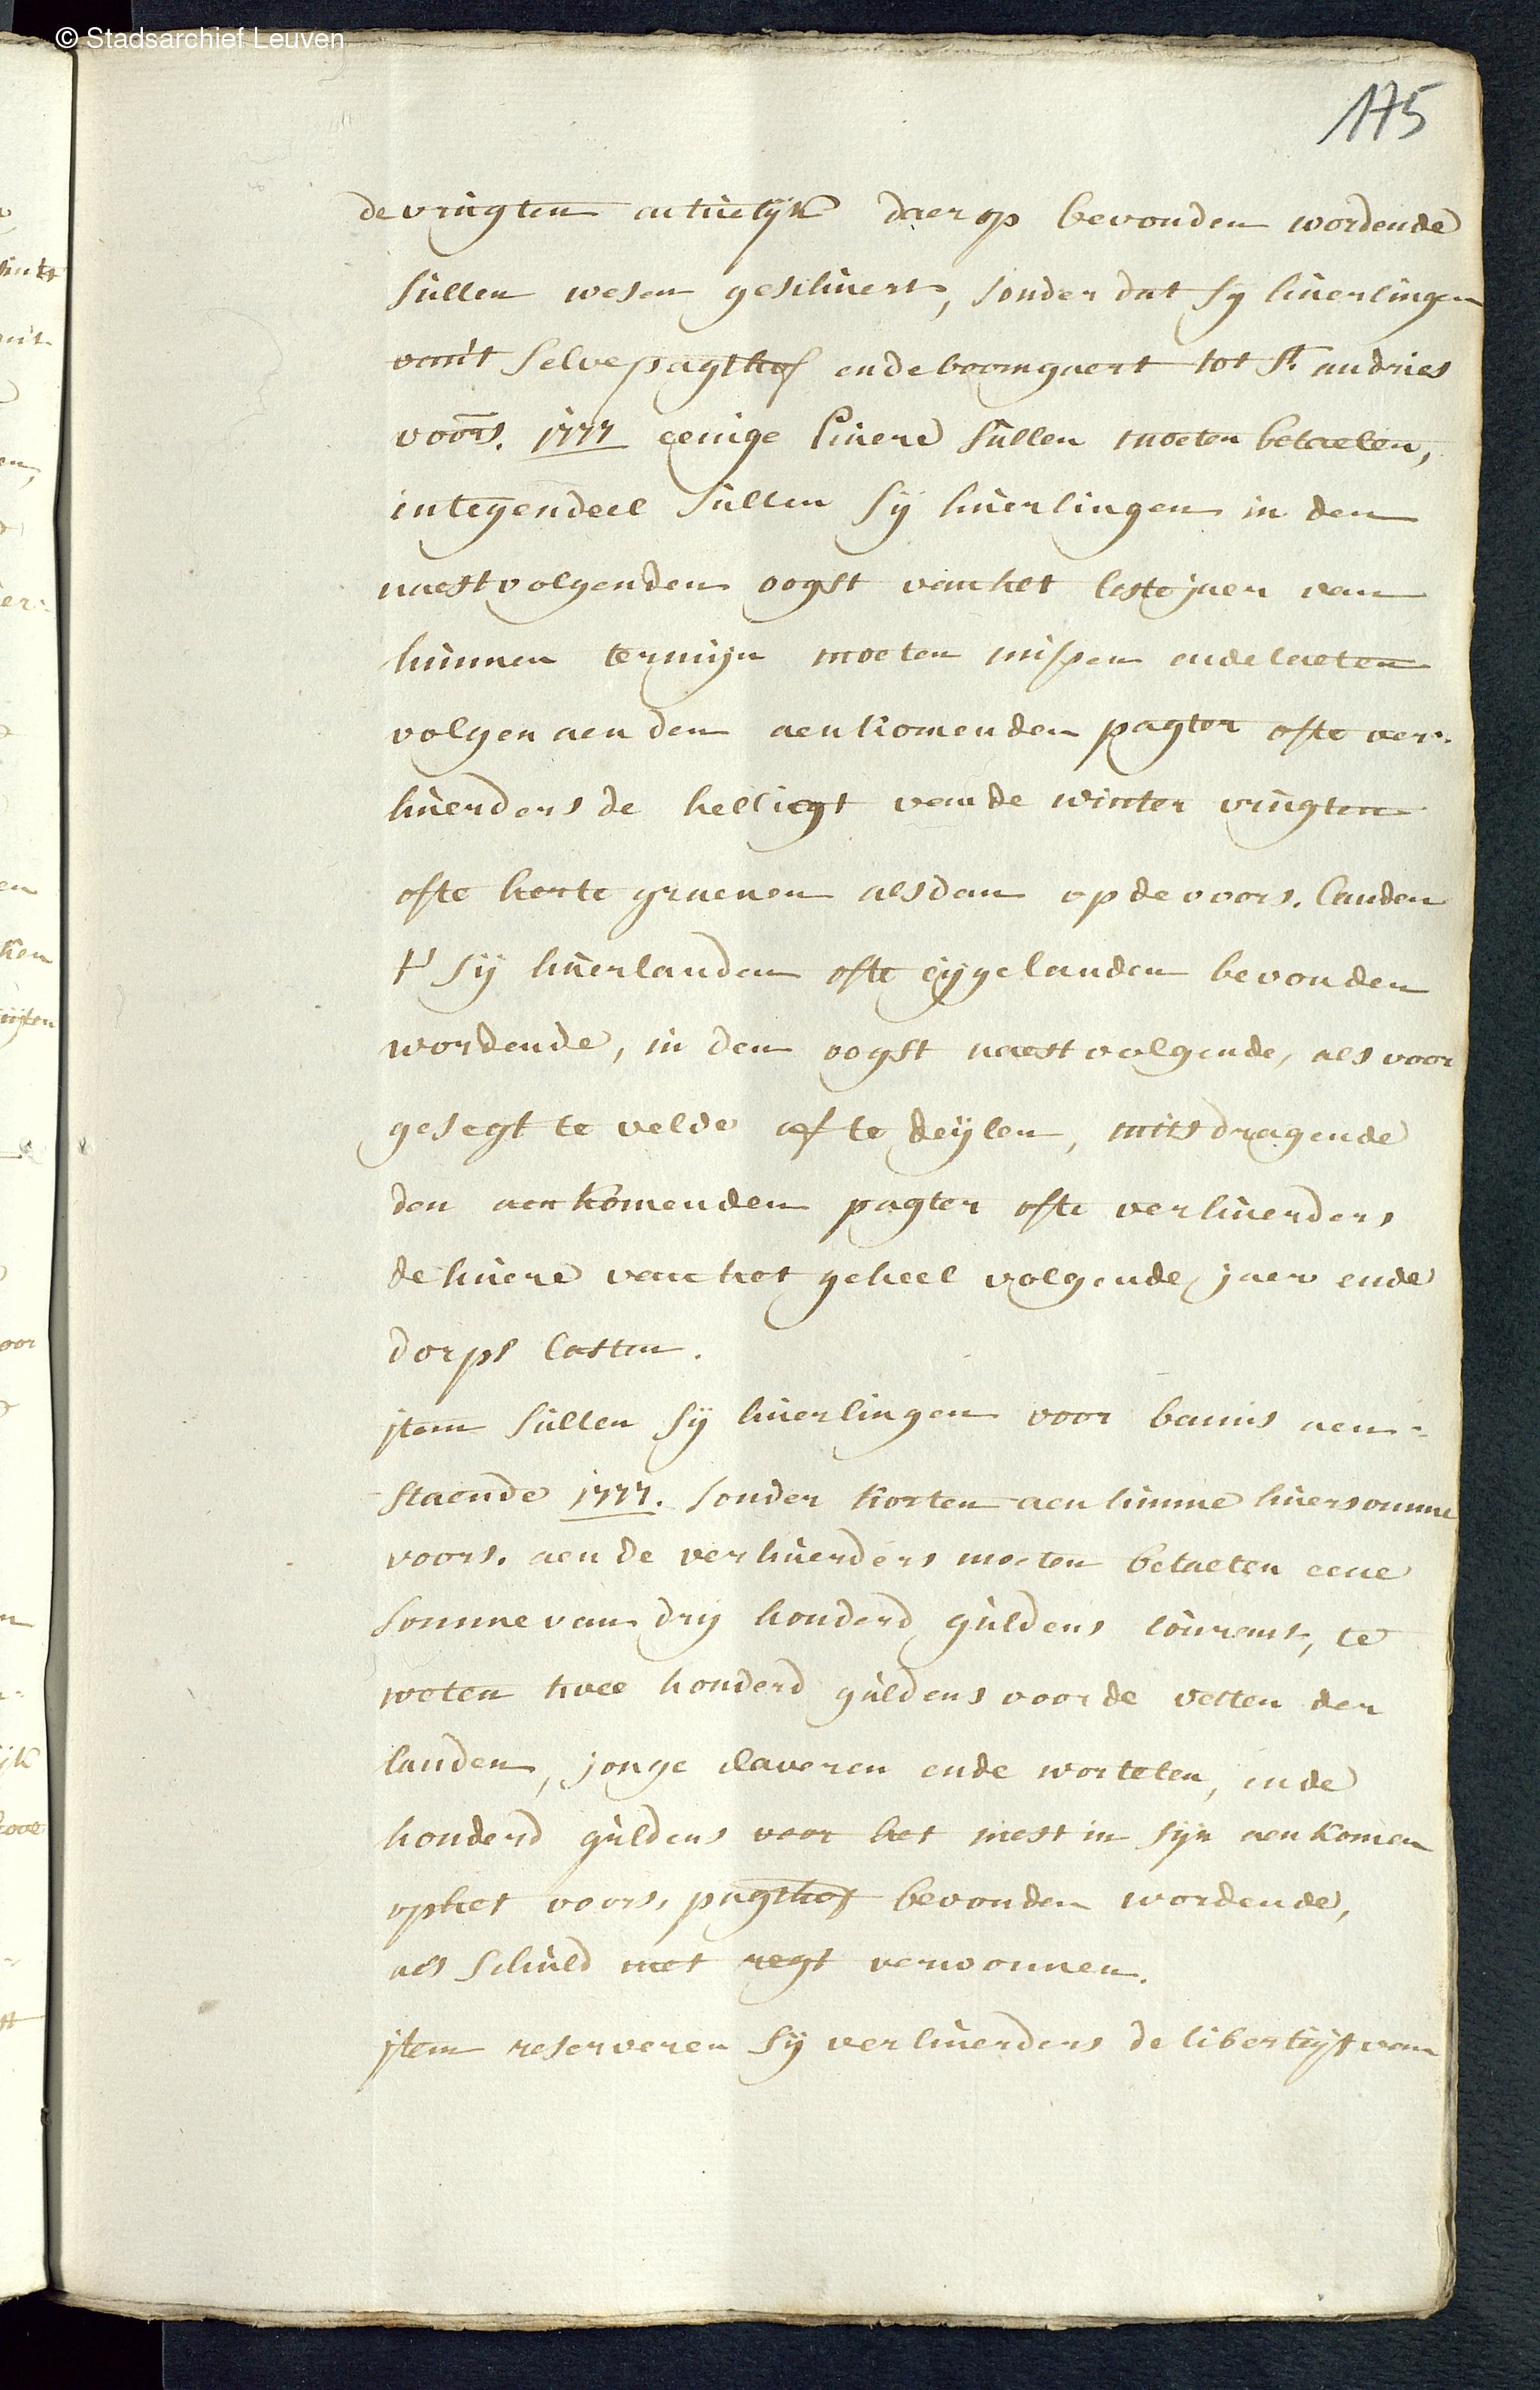 © Stadsarchief Leuven
175
de vrugten actuelijk daer op bevonden wordende
sullen wesen geschuert, sonder dat sy huerlingen
van't selve pagthof ende boomgaert tot St. andries
voors. 1777 eenige huere sullen moeten betaelen,
integendeel sullen sij huerlingen in den
naestvolgenden oogst van het leste jaer van
hunnen termijn moeten missen ende laeten
volgen aen den aenkomenden pagter ofte ver-
huerders de helligt van de winter vrugten
ofte herte graenen alsdan op de voors. landen
't sij huerlanden ofte eijgelanden bevonden
wordende, in den oogst naest volgende, als voor
gesegt te velde af te deijlen, mits dragende
den aenkomenden pagter ofte verhuerders
de huere van het geheel volgende jaer ende
dorps lasten.
jtem sullen sij huerlingen voor bamis aen-
staende 1777. sonder korten aen hunne huersomme
voors. aen de verhuerders moeten betaelen eene
somme van drij honderd guldens courant, te
weten twee honderd guldens voor de vetten der
landen, jonge claveren ende wortelen, ende
honderd guldens voor het mest in sijn aenkomen
op het voors. pagthof bevonden wordende,
als schuld met regt verwonnen.
jtem reserveren sij verhuerders de liberteijt van